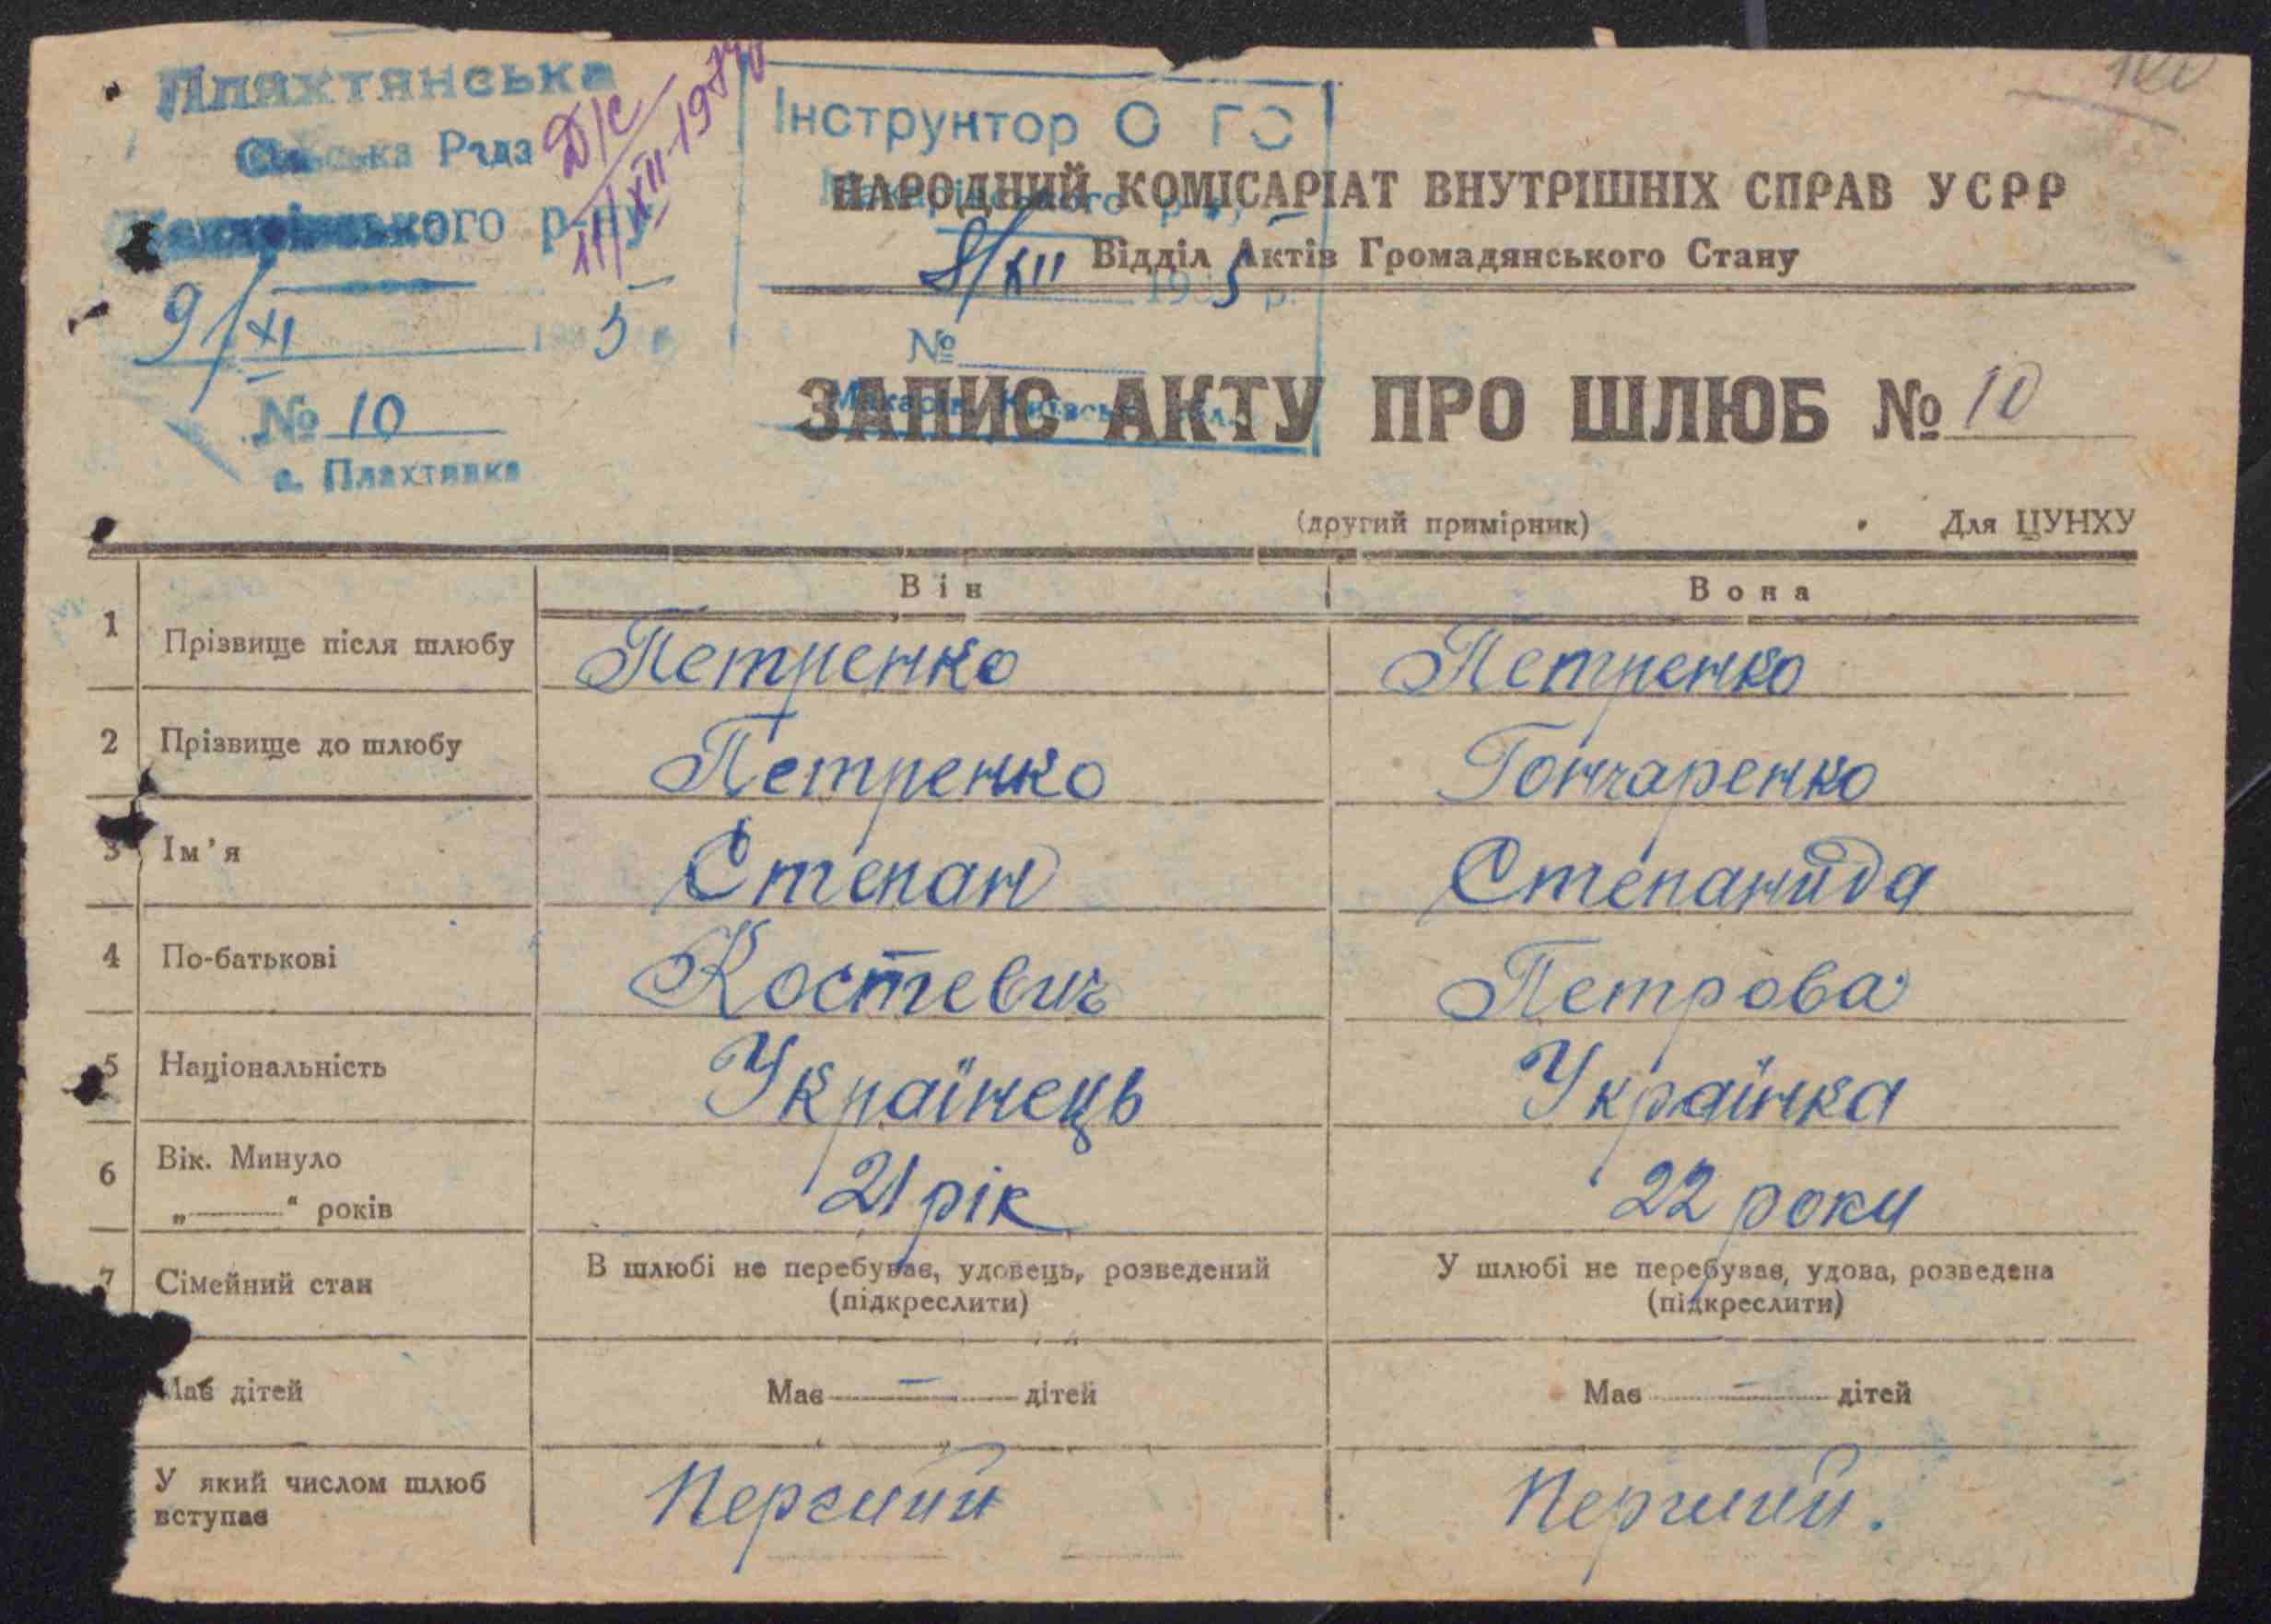 Плахтянська
Сільська Рада
Макарівського р-ну
9/XI 1935 р.
№ 10
с. Плахтянка
Д/с
11/XII-19
Інструктор О ГС
Макарівського р-ну
8/XII 1935 р.
№
Макарів, Київськ
100
НАРОДНИЙ КОМІСАРІАТ ВНУТРІШНІХ СПРАВ УСРР
Відділ Актів Громадянського Стану
ЗАПИС АКТУ ПРО ШЛЮБ № 10
(другий примірник) Для ЦУНХУ
Він Вона
1 Прізвище після шлюбу Петренко Петренко
2 Прізвище до шлюбу Петренко Гончаренко
3 Ім'я Степан Степанида
4 По-батькові Костевич Петрова
5 Національність Українець Українка
6 Вік. Минуло
„——“ років 21 рік 22 роки
7 Сімейний стан В шлюбі не перебуває, удовець, розведений У шлюбі не перебуває, удова, розведена
(підкреслити) (підкреслити)
Має дітей Має — дітей Має — дітей
У який числом шлюб
вступає Перший Перший.